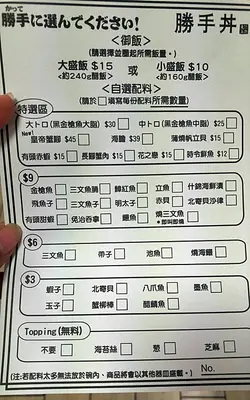 かって
勝手に選んでください! 勝手丼
<御飯>
(請選擇並圈起所需飯量。)
大盛飯 $15 或 小盛飯 $10
<約240g醋飯> <約160g醋飯>
<自選配料>
(請於□填寫每份配料所需數量)
特選區
大トロ (黑金槍魚大腩) $30 中トロ (黑金槍魚中腩) $25
New!
皇帝蟹腳 $45 海膽 $39 蒲燒帆立貝 $15
有頭赤蝦 $15 長腳蟹肉 $15 花之戀 $15 時令鮮魚 $12
$9
金槍魚 三文魚腩 鰰紅魚 立魚 什錦海鮮漬
飛魚子 三文魚子 明太子 赤貝 北寄貝沙律
有頭甜蝦 免治吞拿 鰻魚 燒三文魚
*即叫即燒
$6
三文魚 帶子 池魚 燒海鰻
$3
蝦子 北寄貝 八爪魚 墨魚
玉子 蟹柳棒 醋鯖魚
Topping (無料)
不要 海苔絲 葱 芝麻
(注:若配料太多無法放於碗內、商品將會以其他器皿盛載。) No.